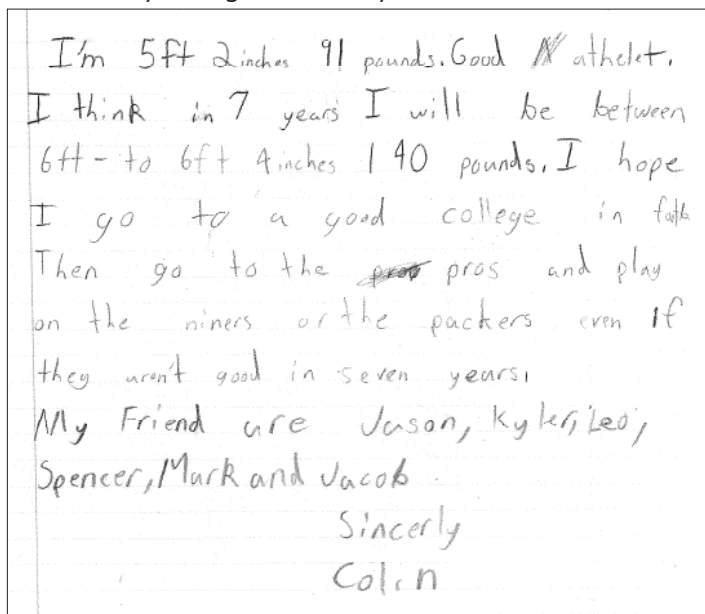 I'm 5ft 2inches 91 pounds. Good athelet.
I think in 7 years I will be between
6ft - to 6ft 4inches 140 pounds. I hope
I go to a good college in
Then go to the pros and play
on the niners or the packers even if
they uren't good in seven years,
My Friend are Jason, Kyler, Leo,
Spencer, Mark and Jacob
Sincerly
Colin